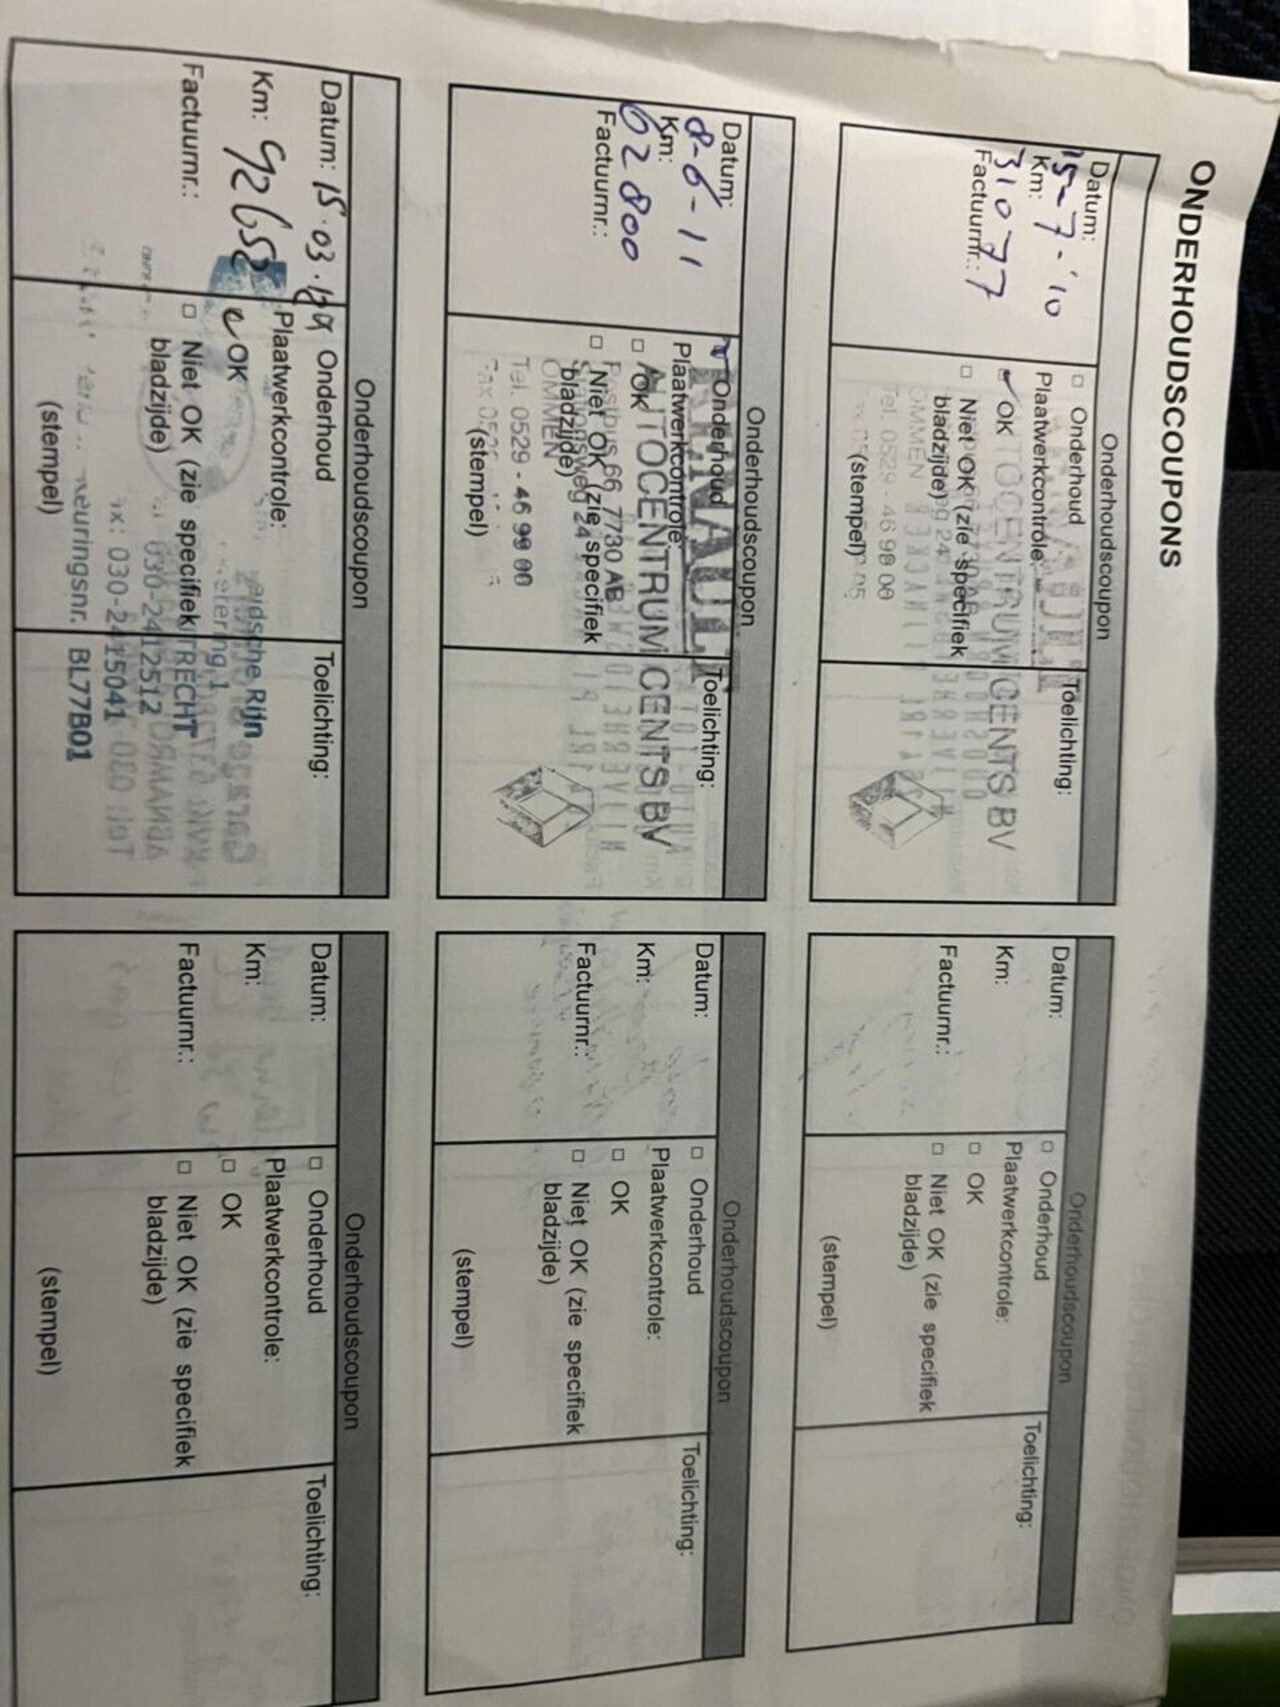 ONDERHOUDSCOUPONS
Onderhoudscoupon
Datum:
15-7-'10
Km:
31077
Factuurnr.:
□ Onderhoud
Plaatwerkcontrole:
✓ OK
□ Niet OK (zie specifiek
bladzijde)
(stempel)
Toelichting:
CENTS BV
OMMEN
Tel. 0529 - 46 99 00
Onderhoudscoupon
Datum:
8-6-11
Km:
62800
Factuurnr.:
Onderhoud
Plaatwerkcontrole:
□ OK
□ Niet OK (zie specifiek
bladzijde)
(stempel)
Toelichting:
RENAULT
AUTOCENTRUM CENTS BV
Postbus 66 7730 AB
OMMEN
Tel. 0529 - 46 99 00
Onderhoudscoupon
Datum: 15.03.
Km: 92658
Factuurnr.:
Onderhoud
Plaatwerkcontrole:
OK
□ Niet OK (zie specifiek
bladzijde)
(stempel)
Toelichting:
Rijn
UTRECHT
030-2412512
030-2415041
BL77B01
Onderhoudscoupon
Datum:
Km:
Factuurnr.:
□ Onderhoud
Plaatwerkcontrole:
□ OK
□ Niet OK (zie specifiek
bladzijde)
(stempel)
Toelichting:
Onderhoudscoupon
Datum:
Km:
Factuurnr.:
□ Onderhoud
Plaatwerkcontrole:
□ OK
□ Niet OK (zie specifiek
bladzijde)
(stempel)
Toelichting:
Onderhoudscoupon
Datum:
Km:
Factuurnr.:
□ Onderhoud
Plaatwerkcontrole:
□ OK
□ Niet OK (zie specifiek
bladzijde)
(stempel)
Toelichting: